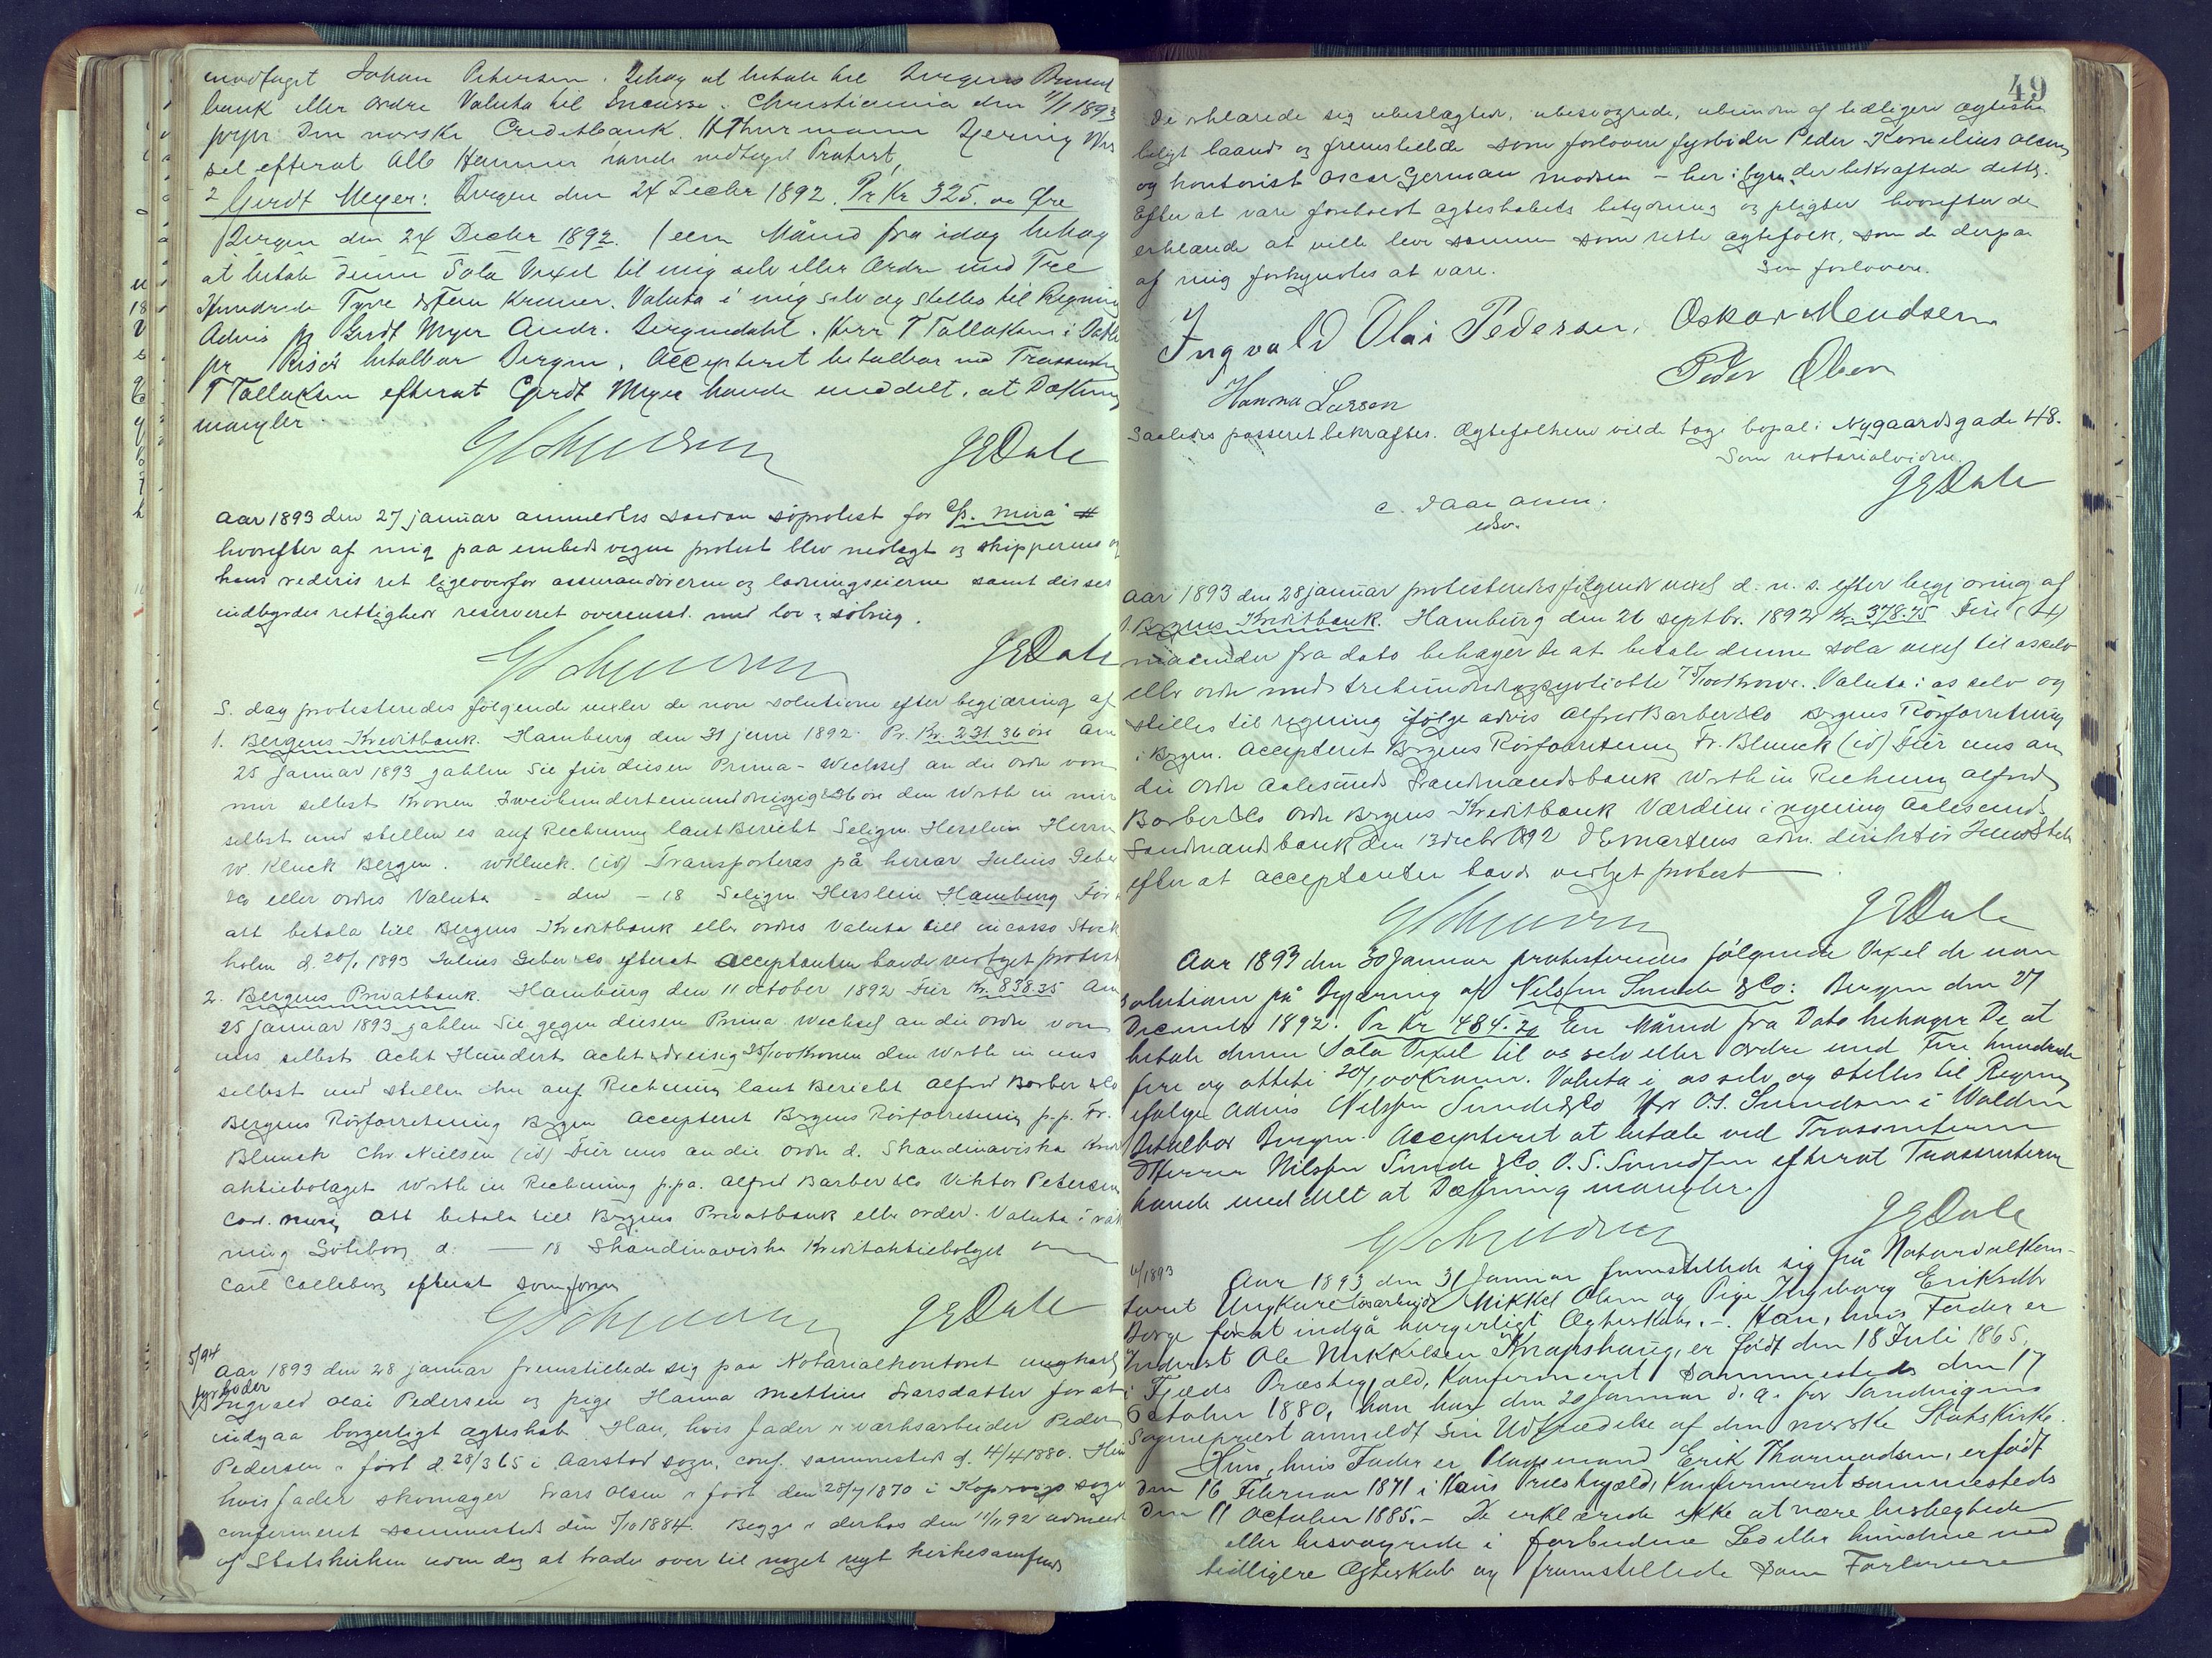 modtaget Johan Petersen. Behag at betale til Bergens Privat
bank eller Ordre Valuta til Incasso. Christiania den 11/1 1893
prpr Den norske Creditbank. HThurmann
sel efterat Alb Hammer havde nedlaget Protest,
2 Gerdt Meyer: Bergen den 24 Decbr 1892. Pr Kr 325. oo Øre
Bergen den 24 Decbr 1892. 1 een Måned fra idag behag
at betale denne Sola Vexel til mig selv eller Ordre med Tre
Hundrede Tyve & Fem Kroner. Valuta i mig selv og stilles til Regning
Advis pr Gerdt Meyer Andr. Bergendahl. Herr T Tallaksen i
pr Risør betalbar Bergen. Accepteret betalbar ved Trassenten
T Tallaksen efterat Gerdt Meyer havde meddelt, at Dækning
mangler.
JEDahl
Aar 1893 den 27 januar anmeldtes saadan søprotest for S/s. Mira #
hvorefter af mig paa embeds vegne protest blev nedlagt og skipperens og
hans rederis ret ligeoverfor assurandørerne og ladningseierne samt disses
indbyrdes rettigheder reserveret overensst. med lov & søbrug.
JEDahl
S. dag protesteredes følgende vexler de non solutione efter begjæring af
1. Bergens Kreditbank. Hamburg den 21 juni 1892. Pr. Kr. 231.36 øre Am
25 Januar 1893 zahlen Sie für diesen Prima-Wechsel an die Ordre von
mir selbst Kronen Zweihunderteinunddreiszig & 36 øre den Werth in mir
selbst und stellen es auf Rechnung laut Bericht Seligm. Hesslein Herrn
W. Kluck Bergen. WKluck. (id) Transporteras på herrar Julius Geber
&Co eller ordres Valuta - den - 18 Seligm Hesslein Hamburg För
att betala till Bergens Kreditbank eller ordres Valuta till incasso Stock
holm d. 20/1 1893 Julius Geber &Co efterat Acceptanten havde vedtaget protest
2. Bergens Privatbank. Hamburg den 11 october 1892 Für Kr. 838.35 Am
25 januar 1893 zahlen Sie gegen diesen Prima Wechsel an die Ordre von
uns selbst Acht Hundert Acht & dreiszig 35/100 Kronen den Werth in uns
selbst und stellen ihn auf Rechnung laut Bericht Alfred Barber &Co
Bergens Rørforretning Bergen Accepteret Bergens Rørforretning p.p. Fr.
Blunck Chr. Nielsen (id) Für uns an die Ordre d. Skandinaviska Kredit
aktiebolaget Werth in Rechnung p.pa. Alfred Barber &Co Viktor Petersen
att betala till Bergens Privatbank eller order. Valuta i räk
ning Göteborg d. — 18 Skandinaviska Kreditaktiebolaget
Carl efterat som foran
JEDahl
5/94 Aar 1893 den 28 januar fremstillede sig paa Notarialkontoret ungkarl
fyrbøder Ingvald Olai Pedersen og pige Hanna Mettine Larsdatter for at
indgaa borgerligt ægteskab. Han, hvis fader er værksarbeider Peder
Pedersen er født d. 28/3 65 i Aarstad sogn, conf. sammesteds d. 4/4 1880. Hun
hvis fader skomager Lars Olsen er født den 28/7 1870 i Kopervigs sogn
confirmeret sammesteds den 5/10 1884. Begge er derhos den 11/11 92 udmeldt
af Statskirken uden dog at træde over til noget nyt kirkesamfund
49
De erklærede sig ubeslægtede, ubesvogrede, ubundne af tidligere ægteska
beligt baand og fremstillede som forlovere fyrbøder Peder Kornelius Olsen
og kontorist Oscar German Madsen - her i byen, der bekræftede dette.
Efter at være foreholdt ægteskabets betydning og pligter hvorefter de
erklærede at ville leve sammen som rette ægtefolk, som de derpaa
af mig forkyndtes at være. Som forlovere.
Ingvald Olai Pedersen, Oskar Mendsen
Peder Olsen
Hanna Larsen
Saaledes passeret bekræftes. Ægtefolkene vilde tage bopæl i Nygaardsgade 48.
Som notarialvidne.
JEDahl
C. Daae Olsen,
edsv.
Aar 1893 den 28 januar protesteredes følgende vexel d. n. s. efter begjæring af
1. Bergens Kreditbank. Hamburg den 26 septbr. 1892 Kr. 378.75 Fire (4)
maaneder fra dato behager De at betale denne sola vexel til os selv
eller ordre med trehundredeogsyvtiotte 75/100 Kroner. Valuta i os selv og
stilles til regning ifølge advis Alfred Barber &Co Bergens Rørforretning
i Bergen. Accepteret Bergens Rørforretning Fr. Blunck (id) Für uns an
die Ordre Aalesunds Landmandsbank Werth in Rechnung Alfred
Barber &Co Ordre Bergens Kreditbank Værdien i regning Aalesunds
Landmandsbank den 13 decbr 1892 DEMartens adm. direktør
efter at acceptanten havde vedtaget protest
JEDahl
Aar 1893 den 30 Januar protesteredes følgende Vexel de non
solutione på Begjæring af Nilssen Sunde &Co: Bergen den 27
December 1892. Pr Kr 484.20 En Måned fra Dato behager De at
betale denne Sola Vexel til os selv eller Ordre med Fire hundrede
fire og otteti 20/100 Kroner. Valuta i os selv og stilles til Regning
ifølge Advis Nilssen Sunde &Co Hr O.S. Sundsen i Walden
Betalbar Bergen. Accepteret at betale ved Trassenterne
DHerrer Nilssen Sunde &Co. O.S. Sundsen efterat Trassenterne
havde meddelt at Dækning mangler.
JEDahl
6/1893 Aar 1893 den 31 Januar fremstillede sig på Notarialkon-
toret Ungkarl Løsarbejder Mikkel Olsen og Pige Ingeborg Eriksdtr
Berge for at indgå borgerligt Ægteskab. - Han, hvis Fader er
Inderst Ole Mikkelsen Knapshaug, er født den 18 Juli 1865,
i Fjelds Præstegjæld, Konfirmeret sammesteds den 17
October 1880, han har den 20 Januar d. A. for Sandvigens
Sognepræst anmeldt sin Udtrædelse af den norske Statskirke.
Hun, hvis Fader er Erik Thormodsen, er født
den 16 Februar 1871 i Haus Præstegjæld, Konfirmeret sammesteds
den 11 October 1885. - De erklærede ikke at være beslægtede
eller besvogrede i forbudne Led eller bundne ved
tidligere Ægteskab og fremstillede som Forlovere